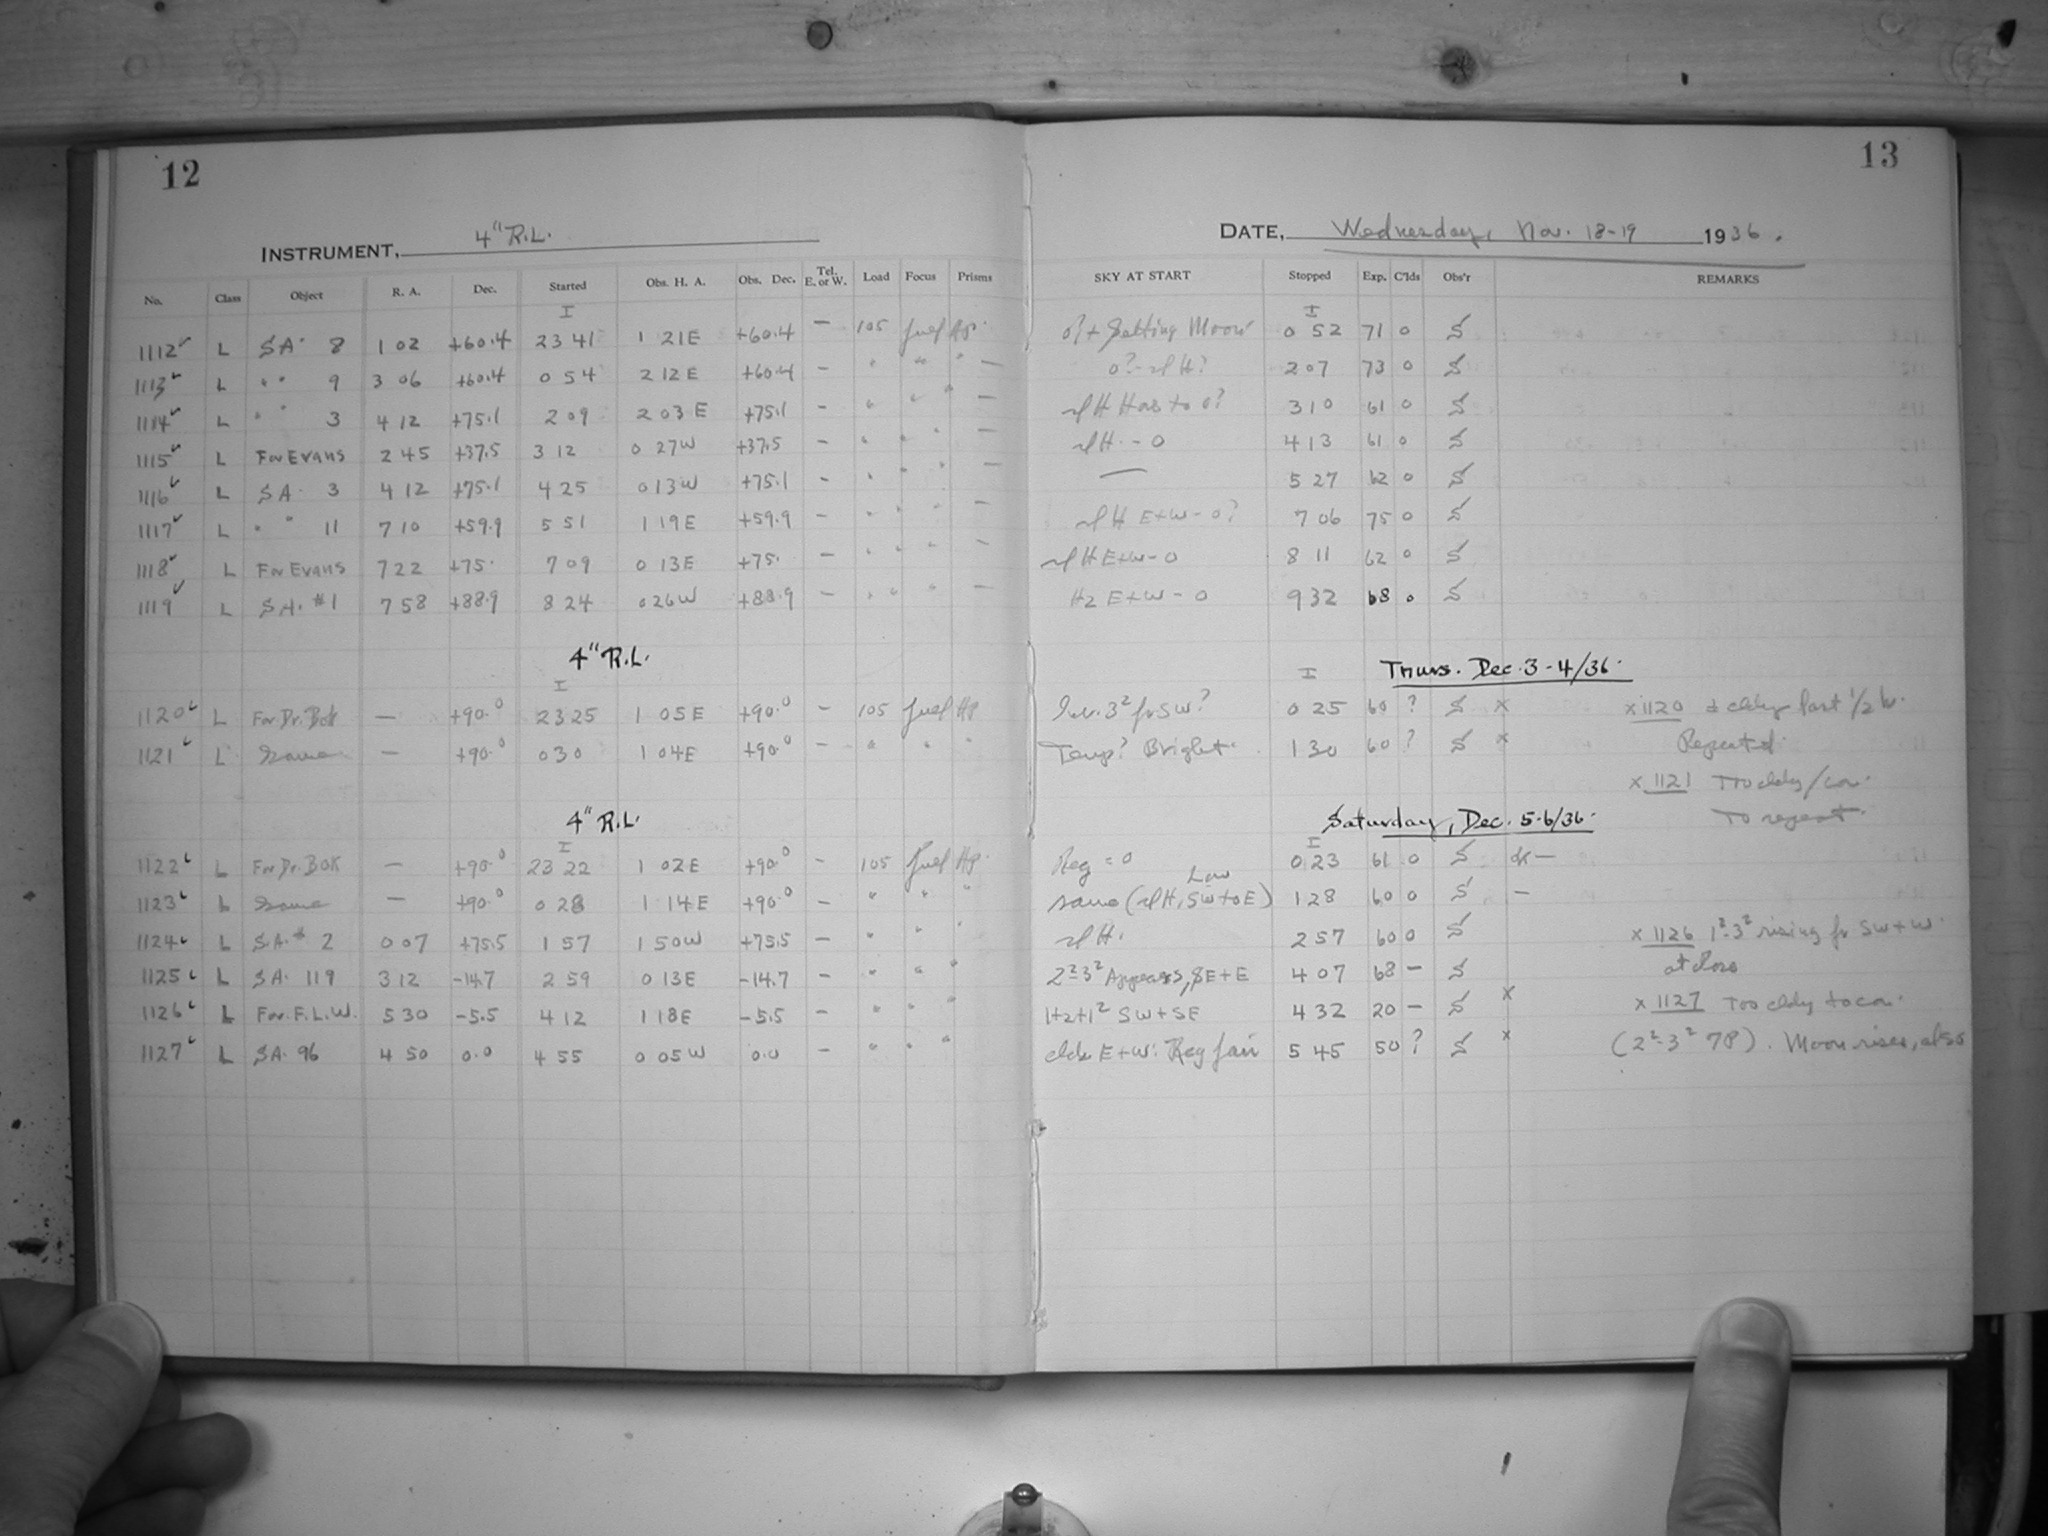 12
INSTRUMENT, 4" R.L.
No. Class Object R. A. Dec. Started Obs. H. A. Obs. Dec. Tel. E. or W. Load Focus Prisms
I
1112 L SA. 8 1 02 +60.4 23 41 1 21E +60.4 — 105
1113 L " " 9 3 06 +60.4 0 54 2 12 E +60.4 — " " " —
1114 L " " 3 4 12 +75.1 2 09 2 03 E +75.1 — " " " —
1115 L For Evans 2 45 +37.5 3 12 0 27W +37.5 — " " " —
1116 L SA. 3 4 12 +75.1 4 25 0 13W +75.1 — " " " —
1117 L " " 11 7 10 +59.9 5 51 1 19E +59.9 — " " " —
1118 L For Evans 7 22 +75. 7 09 0 13E +75. — " " " —
1119 L S.A. #1 7 58 +88.9 8 24 0 26W +88.9 — " " " —
4" R.L.
I
1120 L For Dr. Bok — +90.0 23 25 1 05E +90.0 — 105
1121 L Same — +90.0 0 30 1 04E +90.0 — " " "
4" R.L.
I
1122 L For Dr. Bok — +90.0 23 22 1 02E +90.0 — 105
1123 L Same — +90.0 0 28 1 14E +90.0 — " " "
1124 L S.A.# 2 0 07 +75.5 1 57 1 50W +75.5 — " " "
1125 L SA. 119 3 12 -14.7 2 59 0 13E -14.7 — " " "
1126 L For F.L.W. 5 30 -5.5 4 12 1 18E -5.5 — " " "
1127 L SA. 96 4 50 0.0 4 55 0 05W 0.0 — " " "
13
DATE, Wednesday, Nov. 18-19 1936.
SKY AT START Stopped Exp. C'lds Obs'r REMARKS
I
Setting Moon 0 52 71 0 S
0? 2 07 73 0 S
to 0? 3 10 61 0 S
- 0 4 13 61 0 S
— 5 27 62 0 S
E+W - 0? 7 06 75 0 S
E+W - 0 8 11 62 0 S
H2 E+W - 0 9 32 68 0 S
I Thurs. Dec. 3-4/36.
SW? 0 25 60 ? S x x 1120 last 1/2 hr.
Temp? Bright. 1 30 60 ? S x Repeated.
x 1121 Too cldy/con.
To repeat.
Saturday, Dec. 5-6/36.
I
Reg = 0 0 23 61 0 S
Low
same SW to E) 1 28 60 0 S —
2 57 60 0 S x 1126 1²-3² rising fr SW+W.
2²3² Appears, SE+E 4 07 68 — S at close
1+2+1² SW+SE 4 32 20 — S x x 1127 Too cldy to con.
clds E+W: Reg fair 5 45 50 ? S x (2²-3² 78). Moon rises, also